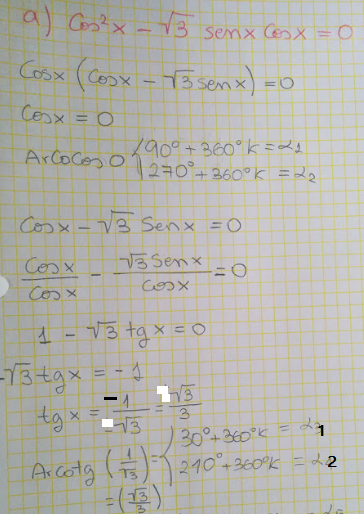 a) Cos²x - √3 senx Cosx = 0
Cosx (Cosx - √3 senx) = 0
Cosx = 0
ArCoCos 0 { 90° + 360°K = α1
270° + 360°K = α2
Cosx - √3 Senx = 0
Cosx/Cosx - √3 Senx/cosx = 0
1 - √3 tgx = 0
-√3 tgx = -1
tgx = -1/-√3 = √3/3
Arcotg (1/√3) = { 30° + 360°K = α1
210° + 360°K = α2
= (√3/3)